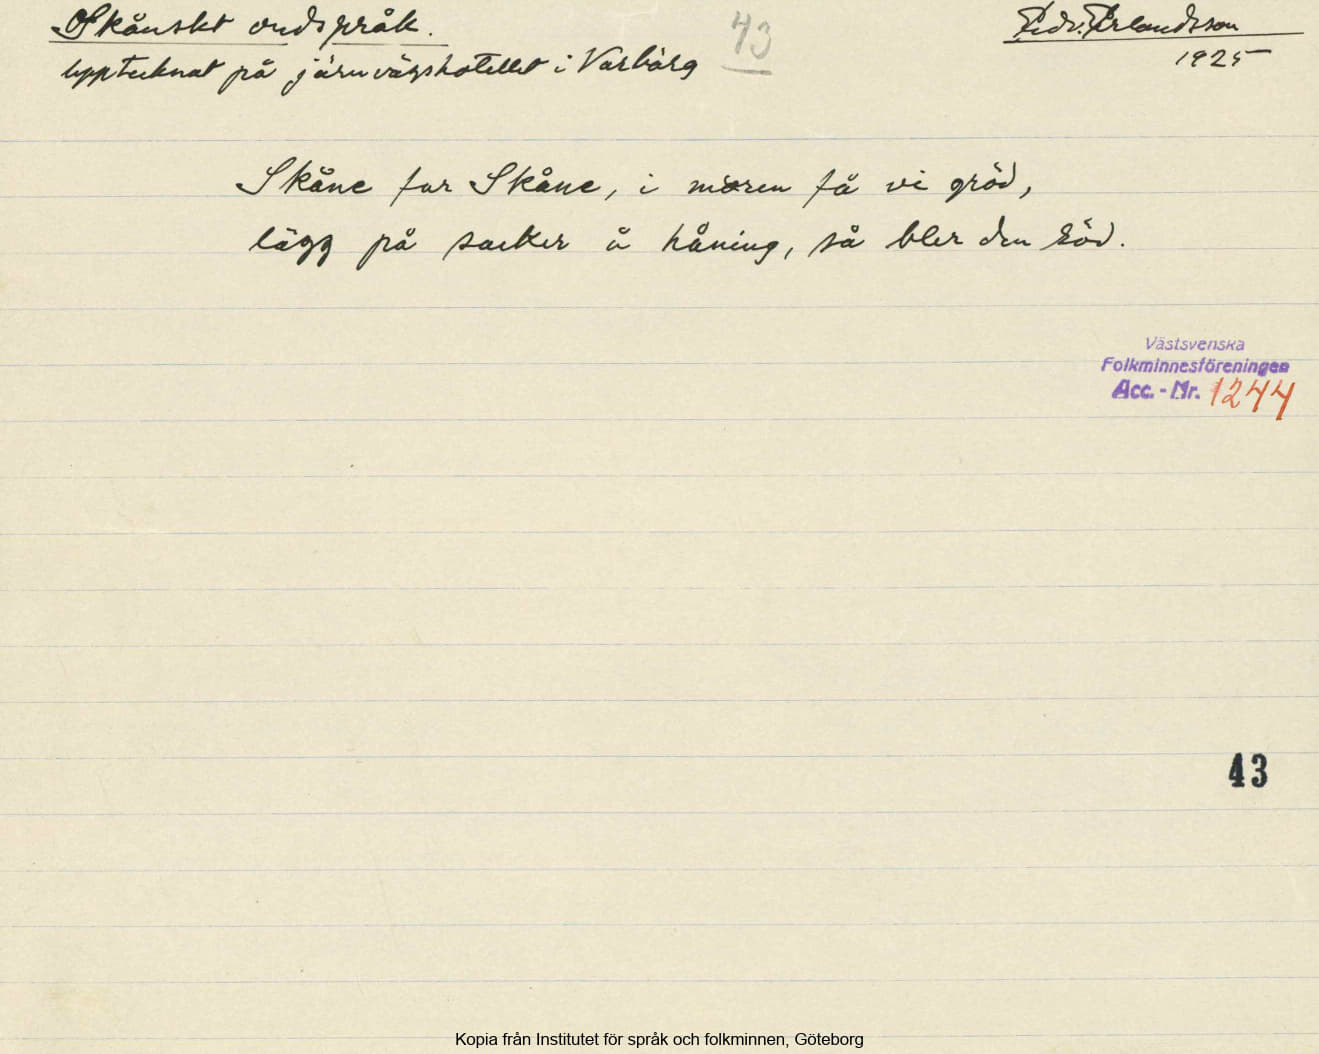 Skånskt ordspråk.
43
Edv. Erlandsson
1925
upptecknat på järnvägshotellet i Varbärg
Skåne for Skåne, i moren få vi gröd,
lägg på socker å håning, så bler den söd.
Västsvenska
Folkminnesföreningen
Acc. - Nr. 1244
43
Kopia från Institutet för språk och folkminnen, Göteborg